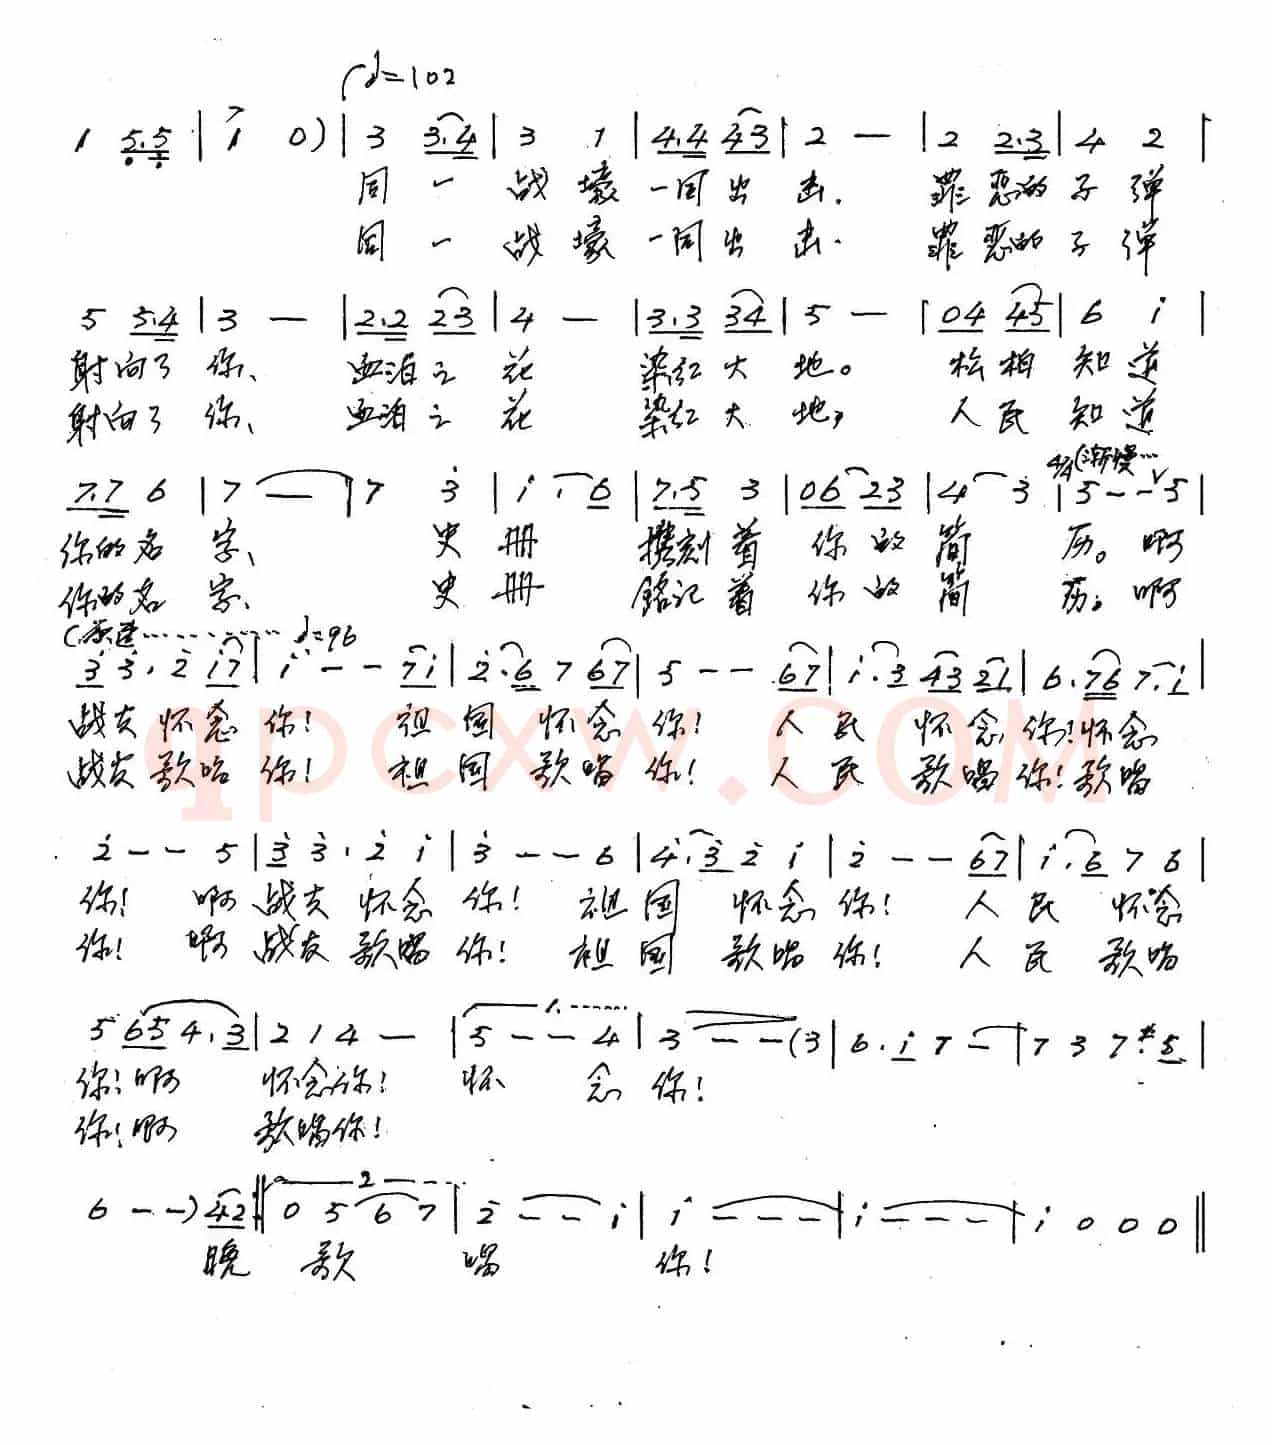 ♩=102
1 5.5 | 1 0) | 3 3.4 | 3 1 | 4.4 43 | 2 — | 2 2.3 | 4 2 |
同 一 战 壕 一同出 击. 罪 恶的 子 弹
同 一 战 壕 一同出 击. 罪 恶的 子 弹
5 5.4 | 3 — | 2.2 23 | 4 — | 3.3 34 | 5 — | 04 45 | 6 i |
射向了 你、 血泊之 花 染红大 地。 松柏 知 道
射向了 你、 血泊之 花 染红大 地, 人民 知 道
4/4 (渐慢…
7.7 6 | 7 — | 7 3 | i . 6 | 7.5 3 | 06 23 | 4 3 | 5 - - 5 |
你的名 字、 史 册 携刻着 你的 简 历。 啊
你的名 字、 史 册 铭记着 你的 简 历; 啊
(原速…… ♩=96
3 3. 2 i7 | i - - 7i | 2.6 7 67 | 5 - - 67 | i.3 43 21 | 6.76 7.i |
战友怀念 你! 祖国 怀念 你! 人民 怀念你!怀念
战友歌唱 你! 祖国 歌唱 你! 人民 歌唱你!歌唱
2 - - 5 | 3 3. 2 i | 3 - - 6 | 4.3 2 i | 2 - - 67 | i.6 7 6 |
你! 啊 战友 怀念 你! 祖国 怀念 你! 人民 怀念
你! 啊 战友 歌唱 你! 祖国 歌唱 你! 人民 歌唱
1.
5 65 4.3 | 2 1 4 — | 5 - - 4 | 3 - - (3 | 6.i 7 - | 7 3 7 #5 |
你!啊 怀念你! 怀 念 你!
你!啊 歌唱你!
2
6 - -) 42 :‖ 0 5 6 7 | 2 - - i | i - - - | i - - - | i 0 0 0 ‖
晚 歌 唱 你!
qpcxw.com